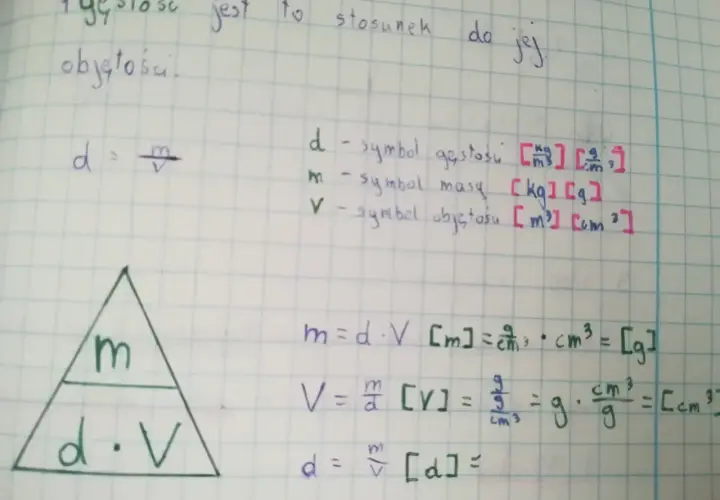 gęstość jest to stosunek do jej
objętości.
d = m/V
d - symbol gęstości [kg/m³] [g/cm³]
m - symbol masy [kg] [g]
V - symbol objętości [m³] [cm³]
m
d · V
m = d · V [m] = g/cm³ · cm³ = [g]
V = m/d [V] = g/(g/cm³) = g · cm³/g = [cm³
d = m/V [d] =